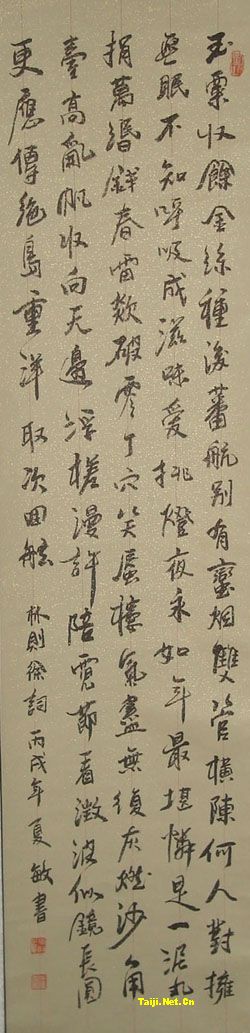 玉粟收餘金絲種後蕃航别有蠻烟雙管橫陳何人對擁
無眠不知呼吸成滋味愛挑燈夜永如年最堪憐是一泥丸
捐萬緡錢春雷欻破零丁穴笑蜃樓氣盡無復灰燃沙角
臺高亂帆收向天邊浮槎漫許陪霓節看澂波似鏡長圓
更應傳絶島重洋取次回舷 林則徐詞 丙戌年夏敏書
Taiji.Net.Cn